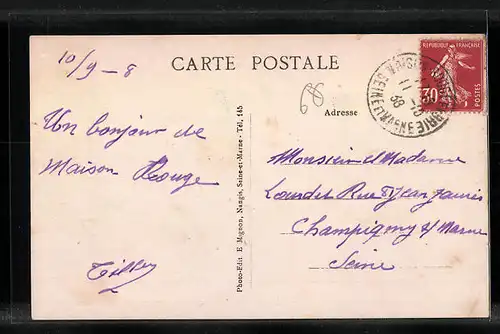 10/9-8
CARTE POSTALE
REPUBLIQUE FRANÇAISE
30
POSTES
Adresse
Un bonjour de
Maison Rouge
Photo-Edit E Mignon, Nangis, Seine-et-Marne - Tél. 145
Monsieur et Madame
Lourdet Rue Jean Jaurès
Champigny s/ Marne
Seine